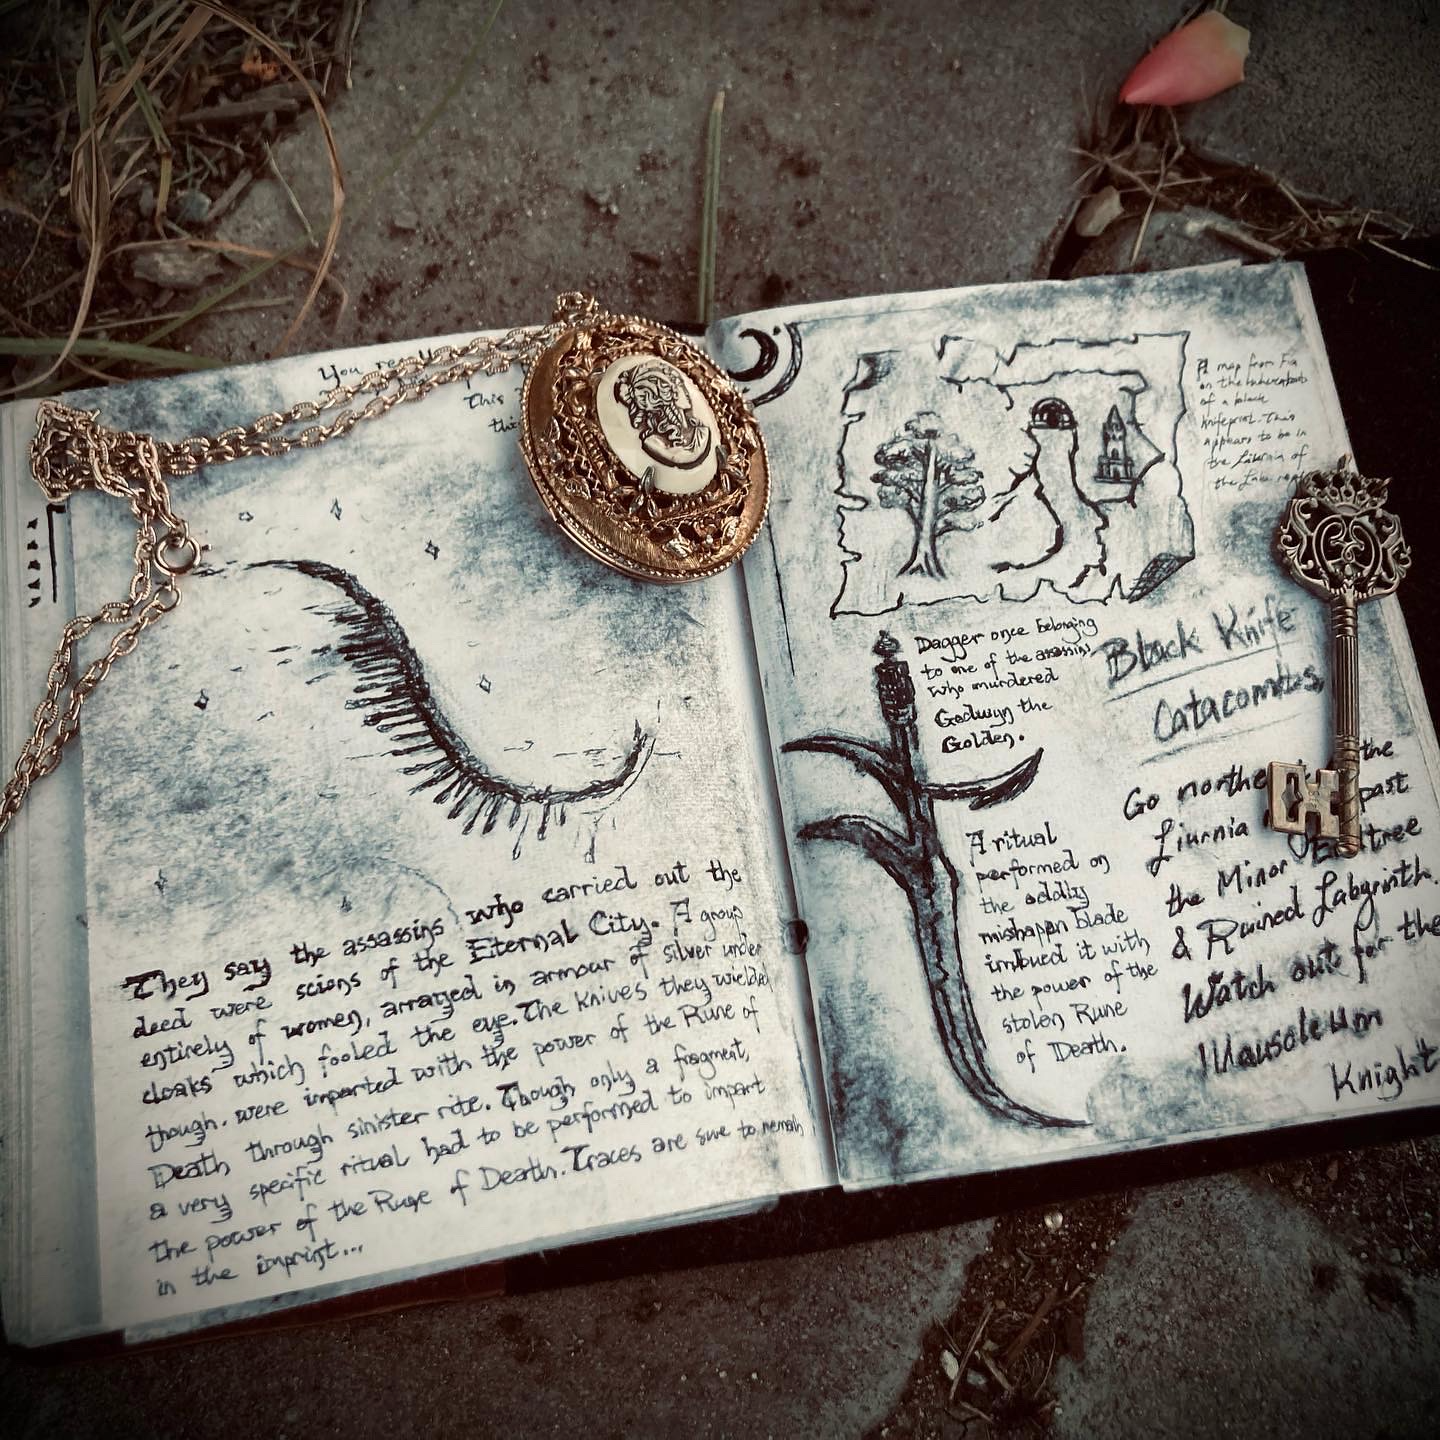 You re
This
thi
They say the assassins who carried out the
deed were scions of the Eternal City. A group
entirely of women, arrayed in armour of silver under
cloaks which fooled the eye. The knives they wielded
though. were imparted with the power of the Rune of
Death through sinister rite. Though only a fragment,
a very specific ritual had to be performed to impart
the power of the Rune of Death. Traces are sure to remain
in the imprint...
A map from Fia
on the whereabouts
of a black
knifeprint. This
appears to be in
the Liurnia of
the Lake re
Dagger once belonging
to one of the assassins
who murdered
Godwyn the
Golden.
Black Knife
Catacombs
A ritual
performed on
the oddly
mishapen blade
imbued it with
the power of the
stolen Rune
of Death.
Go northe the
Liurnia past
the Minor Erdtree
& Ruined Labyrinth.
Watch out for the
Mausoleum
Knight